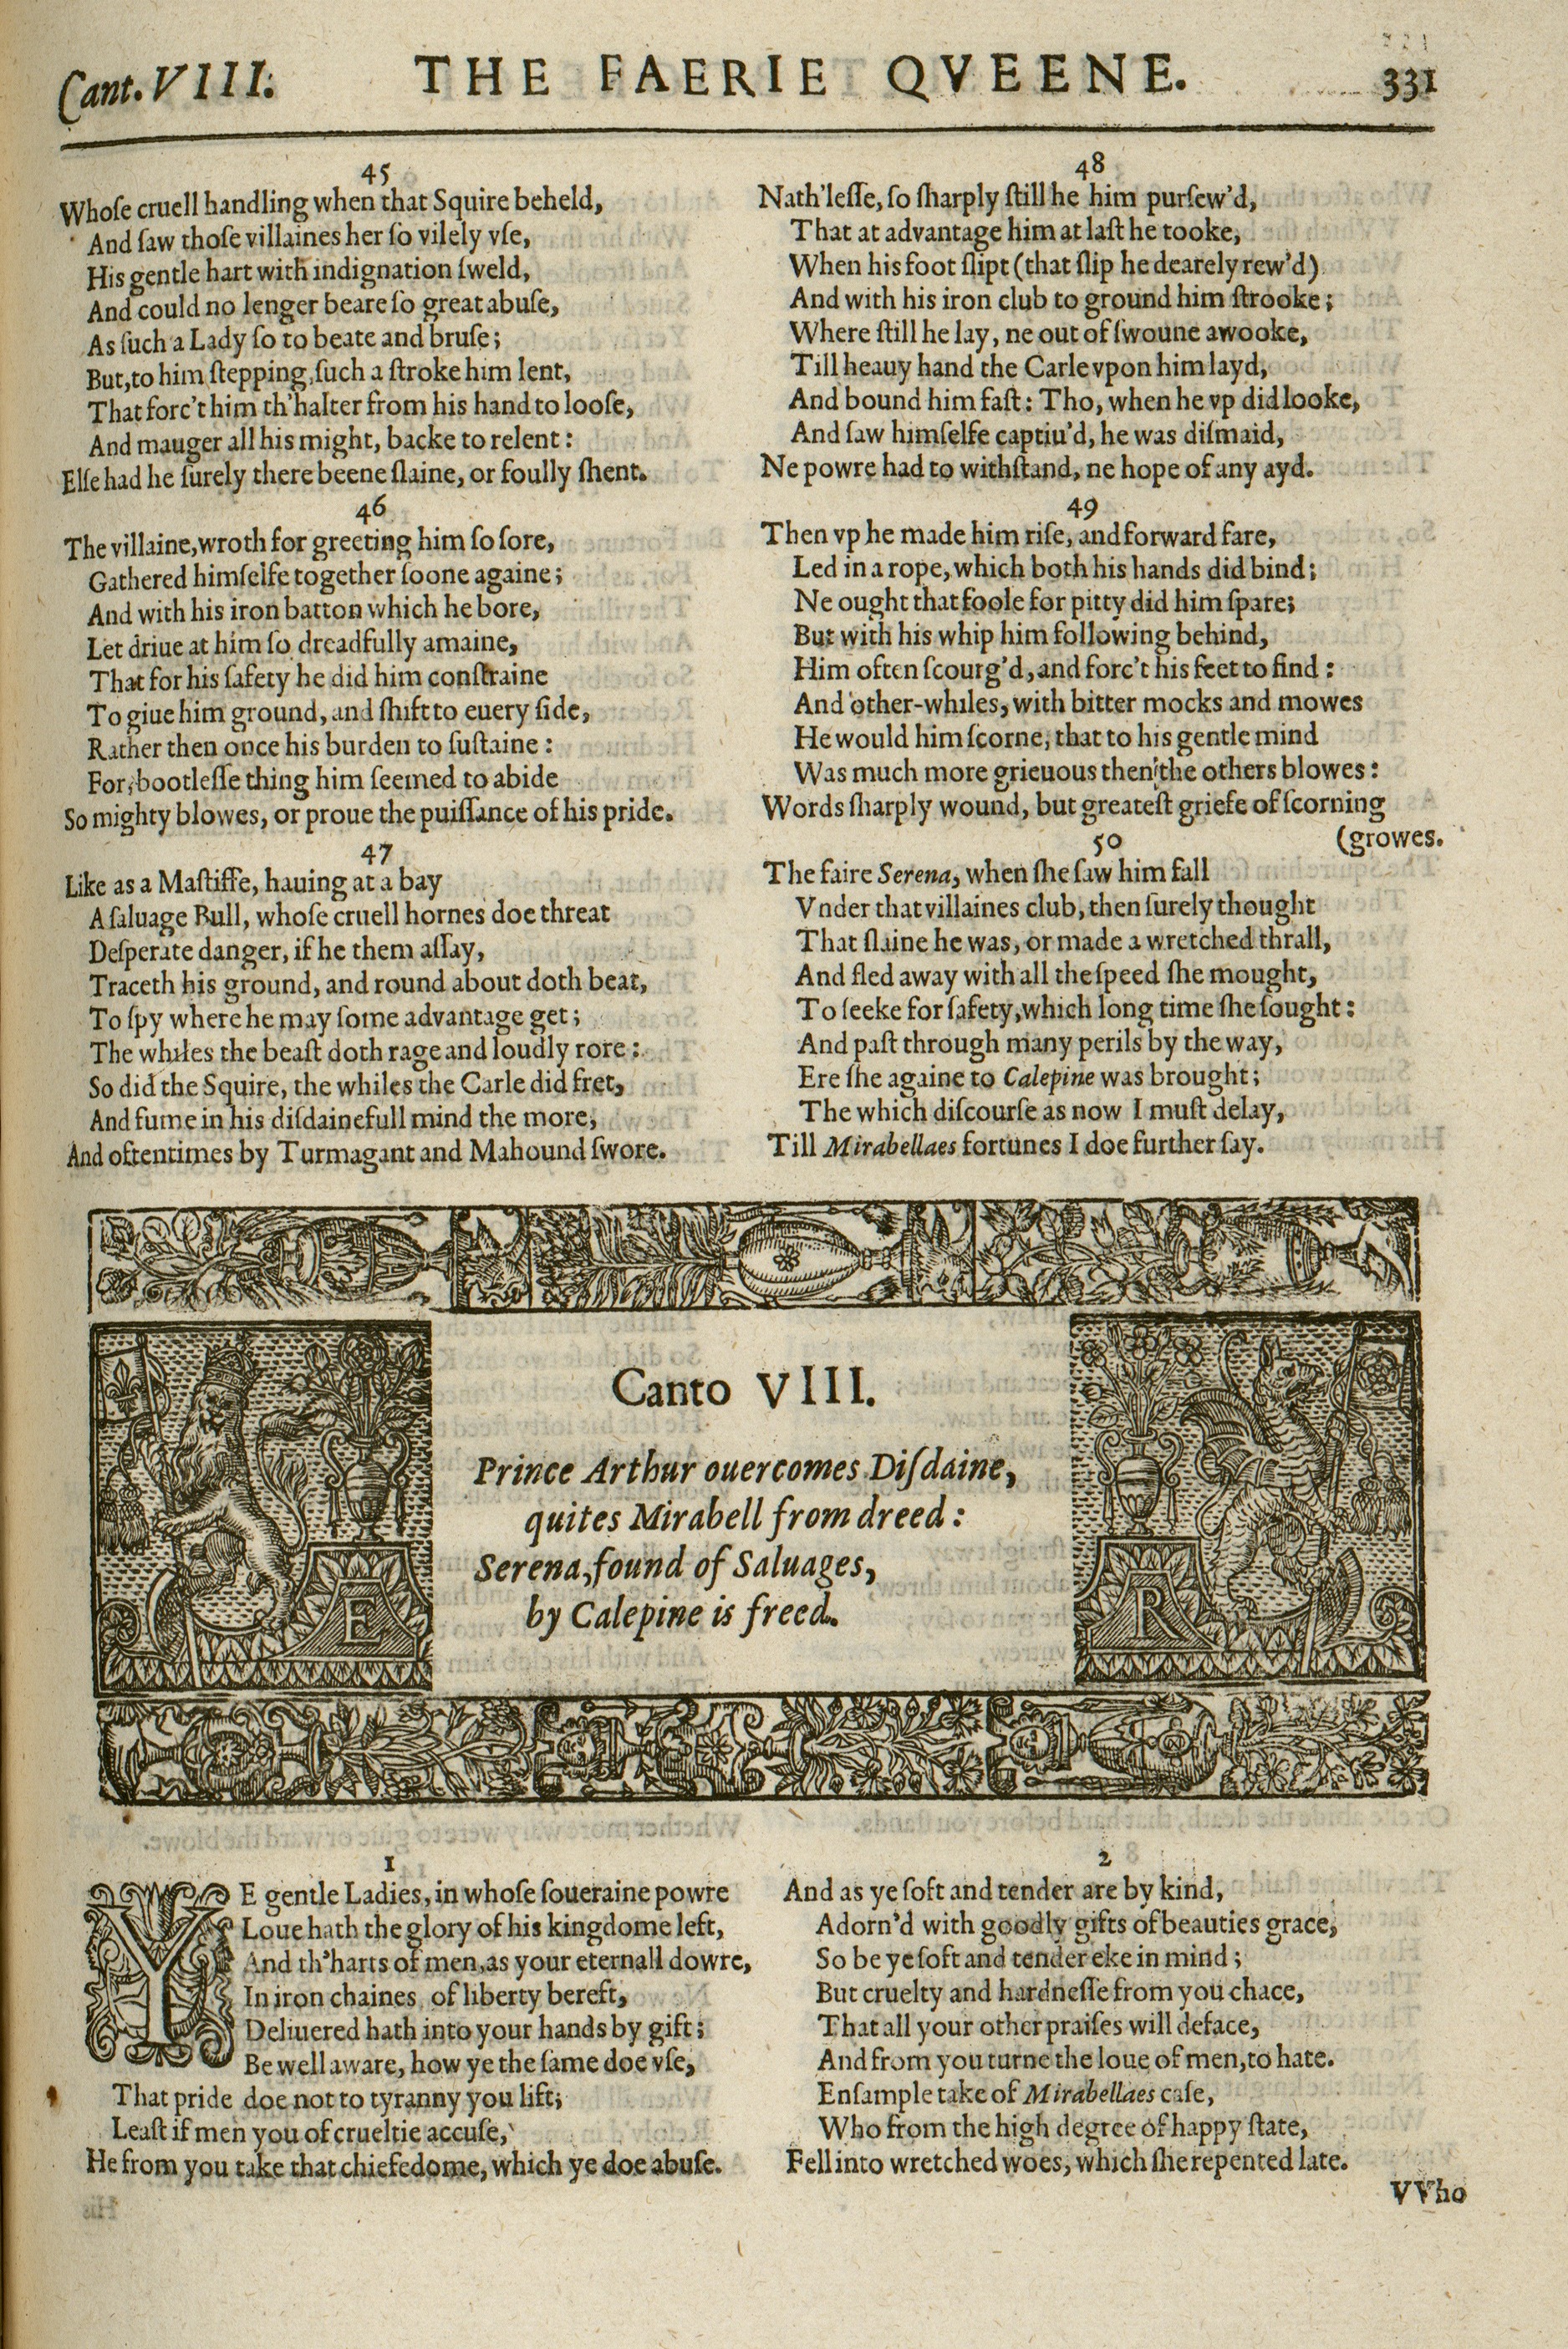 Cant. VIII. THE FAERIE QVEENE. 331
45
Whoſe cruell handling when that Squire beheld,
And ſaw thoſe villaines her ſo vilely vſe,
His gentle hart with indignation ſweld,
And could no lenger beare ſo great abuſe,
As ſuch a Lady ſo to beate and bruſe;
But, to him ſtepping, ſuch a ſtroke him lent,
That forc't him th'halter from his hand to looſe,
And mauger all his might, backe to relent:
Elſe had he ſurely there beene ſlaine, or foully ſhent.
46
The villaine, wroth for greeting him ſo ſore,
Gathered himſelfe together ſoone againe;
And with his iron batton which he bore,
Let driue at him ſo dreadfully amaine,
That for his ſafety he did him conſtraine
To giue him ground, and ſhift to euery ſide,
Rather then once his burden to ſuſtaine:
For, bootleſſe thing him ſeemed to abide
So mighty blowes, or proue the puiſſance of his pride.
47
Like as a Maſtiffe, hauing at a bay
A ſaluage Bull, whoſe cruell hornes doe threat
Deſperate danger, if he them aſſay,
Traceth his ground, and round about doth beat,
To ſpy where he may ſome advantage get;
The whiles the beaſt doth rage and loudly rore:
So did the Squire, the whiles the Carle did fret,
And fume in his diſdainefull mind the more,
And oftentimes by Turmagant and Mahound ſwore.
48
Nath'leſſe, ſo ſharply ſtill he him purſew'd,
That at advantage him at laſt he tooke,
When his foot ſlipt (that ſlip he dearely rew'd)
And with his iron club to ground him ſtrooke;
Where ſtill he lay, ne out of ſwoune awooke,
Till heauy hand the Carle vpon him layd,
And bound him faſt: Tho, when he vp did looke,
And ſaw himſelfe captiu'd, he was diſmaid,
Ne powre had to withſtand, ne hope of any ayd.
49
Then vp he made him riſe, and forward fare,
Led in a rope, which both his hands did bind;
Ne ought that foole for pitty did him ſpare;
But with his whip him following behind,
Him often ſcourg'd, and forc't his feet to find:
And other-whiles, with bitter mocks and mowes
He would him ſcorne, that to his gentle mind
Was much more grieuous then the others blowes:
Words ſharply wound, but greateſt griefe of ſcorning
(growes.
50
The faire Serena, when ſhe ſaw him fall
Vnder that villaines club, then ſurely thought
That ſlaine he was, or made a wretched thrall,
And fled away with all the ſpeed ſhe mought,
To ſeeke for ſafety, which long time ſhe ſought:
And paſt through many perils by the way,
Ere ſhe againe to Calepine was brought;
The which diſcourſe as now I muſt delay,
Till Mirabellaes fortunes I doe further ſay.
Canto VIII.
Prince Arthur ouercomes Diſdaine,
quites Mirabell from dreed:
Serena, found of Saluages,
by Calepine is freed.
E R
1
YE gentle Ladies, in whoſe ſoueraine powre
Loue hath the glory of his kingdome left,
And th'harts of men, as your eternall dowre,
In iron chaines, of liberty bereft,
Deliuered hath into your hands by gift;
Be well aware, how ye the ſame doe vſe,
That pride doe not to tyranny you lift;
Leaſt if men you of crueltie accuſe,
He from you take that chiefedome, which ye doe abuſe.
2
And as ye ſoft and tender are by kind,
Adorn'd with goodly gifts of beauties grace,
So be ye ſoft and tender eke in mind;
But cruelty and hardneſſe from you chace,
That all your other praiſes will deface,
And from you turne the loue of men, to hate.
Enſample take of Mirabellaes caſe,
Who from the high degree of happy ſtate,
Fell into wretched woes, which ſhe repented late.
VVho